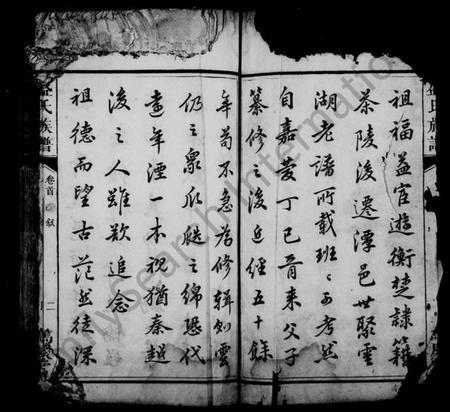 祖福益官遊衡楚隸籍
茶陵後遷潭邑世聚雲
湖老譜所載班班可考然
自嘉慶丁巳晉來父子
纂修之後迄經五十餘
年苟不急為修輯則雲
仍之衆瓜瓞之綿恐代
遠年湮一本視猶秦越
後之人雖欲追念
祖德而望古茫然徒深
氏族譜
卷首
叙
二